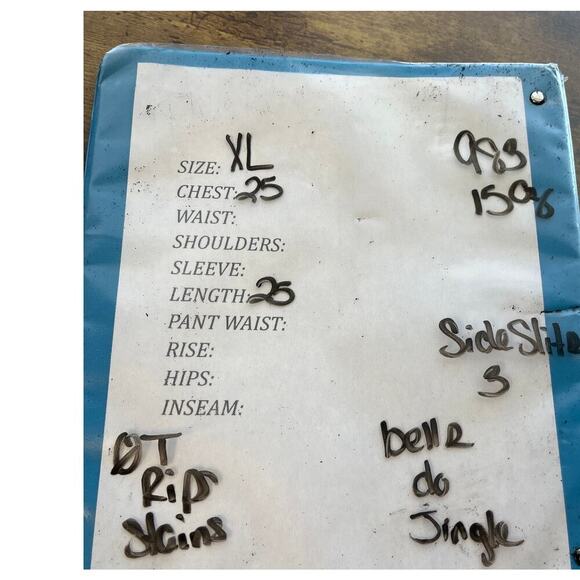 SIZE: XL
983
CHEST: 25
15oz
WAIST:
SHOULDERS:
SLEEVE:
LENGTH: 25
PANT WAIST:
Side Slits
RISE:
3
HIPS:
INSEAM:
ØT
Rips
Stains
bells
do
Jingle